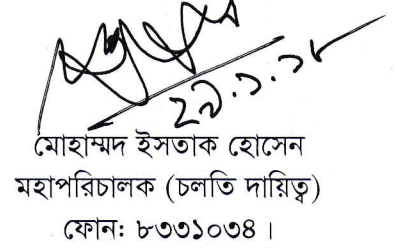 ২৯.১.১৮
মোহাম্মদ ইসতাক হোসেন
মহাপরিচালক (চলতি দায়িত্ব)
ফোন: ৮৩৩১০৩৪।